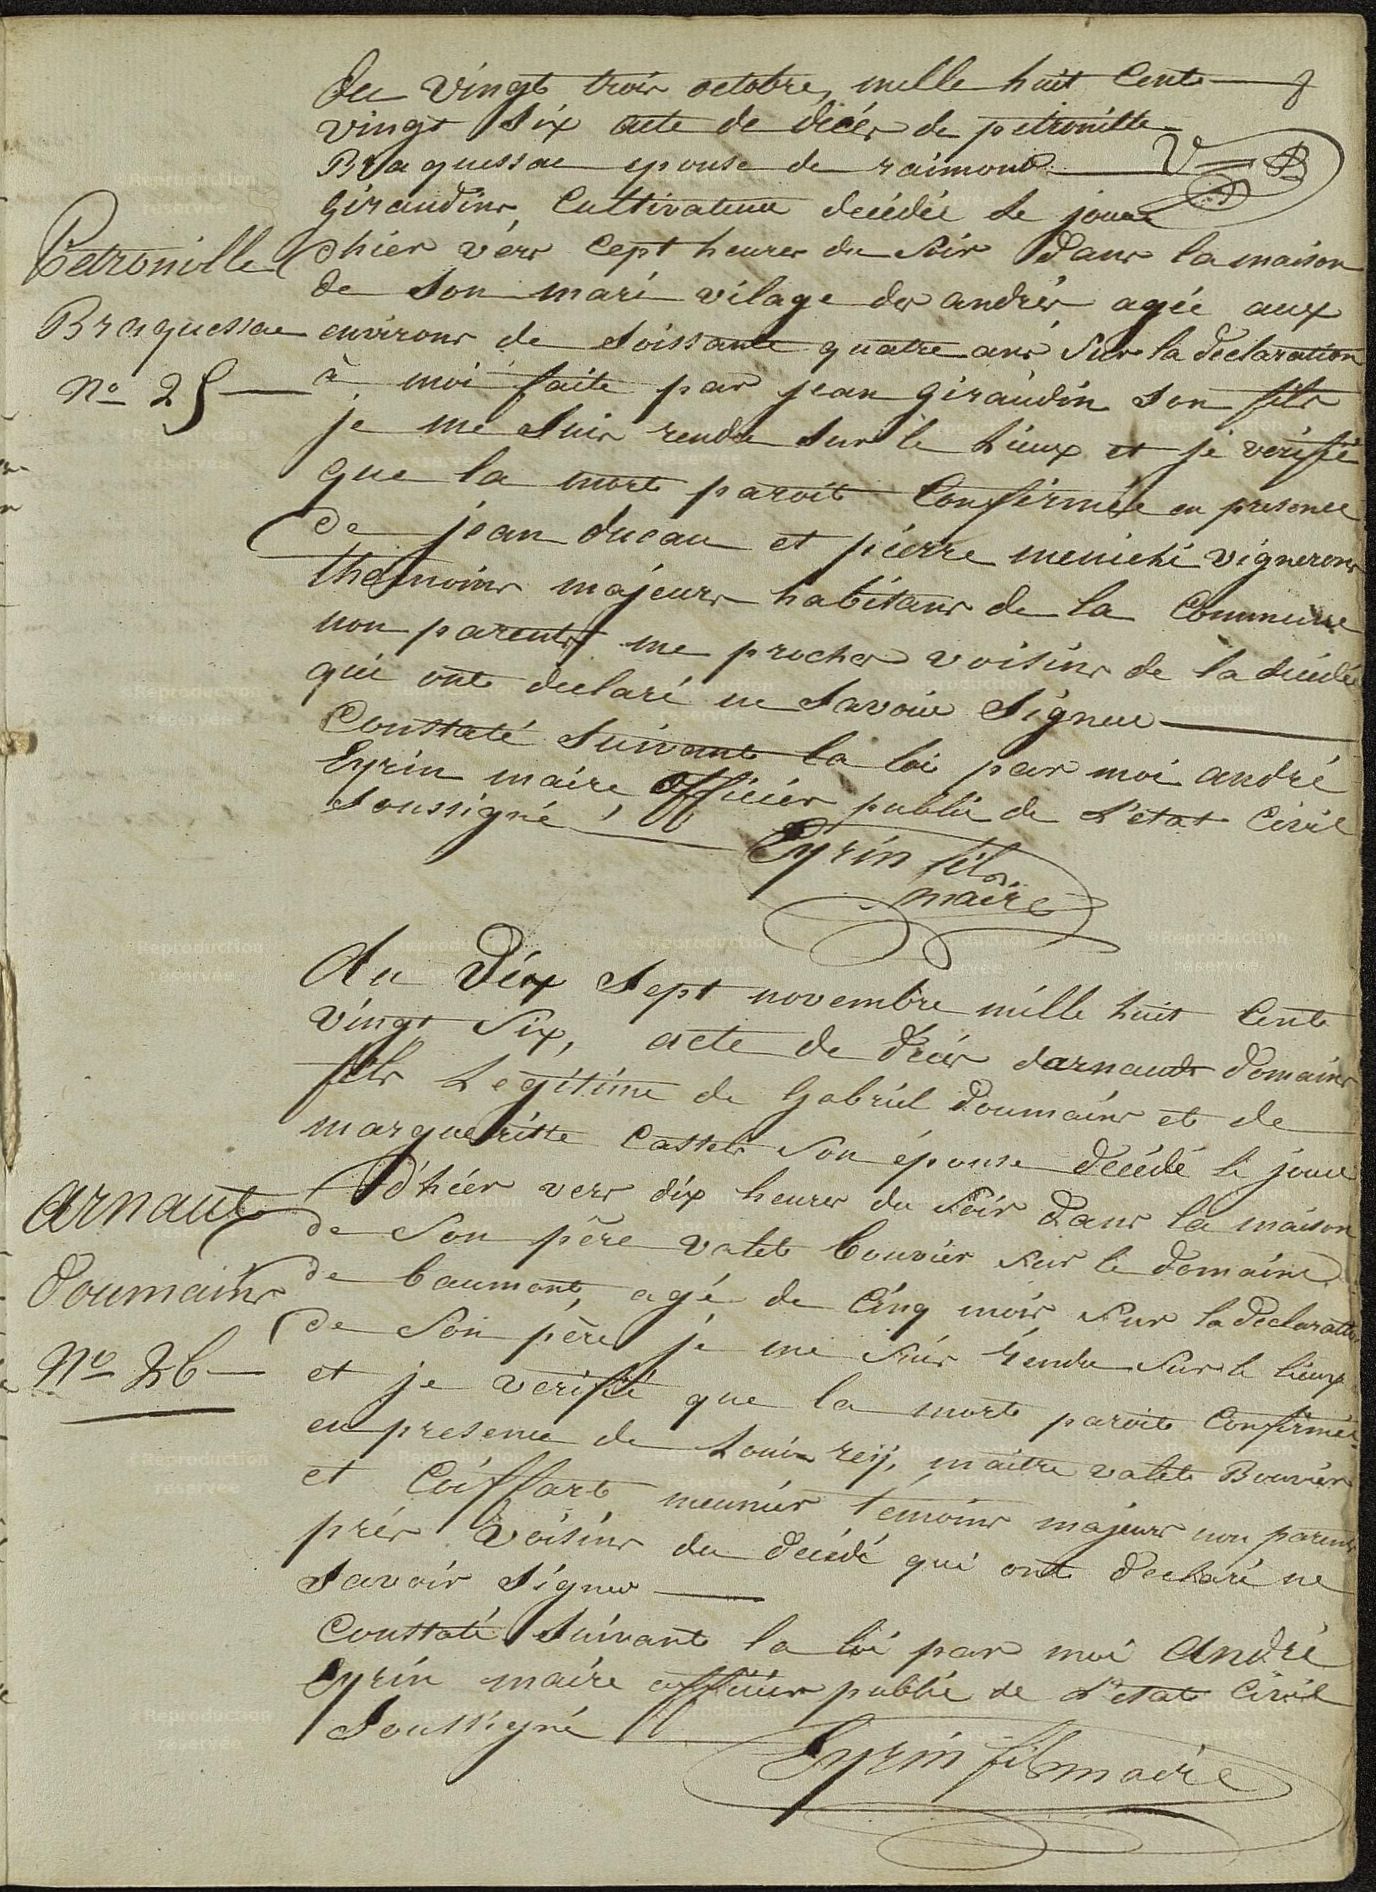 du vingt trois octobre, mille huit Cent 8
vingt Six acte de décés de petronille
Braquessac epouse de raimond
Giraudins, Cultivateur decédée le jour
Petronille dhier vers Cept heures du Soir Dans la maison
de Son mari vilage des andrés agée aux
Braquessac environs de Soissante quatre ans Sur la déclaration
N° 25 à moi faite par jean giraudin Son fils
je me Suis rendu Sur le Lieux et je vérifié
que la mort paroit Confirmée en presence
de jean ducau et pierre menichi vignerons
themoins majeurs habitans de la Commune
non parents me proches voisins de la décédée
qui ont declaré ne Savoir Signer
Constaté Suivant la loi par moi andré
Eyrin maire officier public de L'etat Civil
Soussigné
Eyrin fils
maire
du Dix Sept novembre mille huit Cent
vingt Six, acte de décés darnaud Domains
fils Legitime de Gabriel Doumains et de
margueritte Castets Son épouse décédé le jour
arnaut D'hier vers dix heures du Soir Dans la maison
de Son père valet bouvier Sur le domaine
Doumains de baumont, agé de Cinq mois Sur la declaration
de Son père je me Suis rendu Sur le lieux
N° 26 et je verifié que la mort paroit Confirmée
en presence de Louis rey, maitre valet Bouvier
et Coiffart meunier temoins majeurs non parents
prés voisins du décédé qui ont declaré ne
Savoir Signer
Constaté Suivant la loi par moi André
Eyrin maire officier public de L'etat Civil
Soussigné
Eyrin fils maire